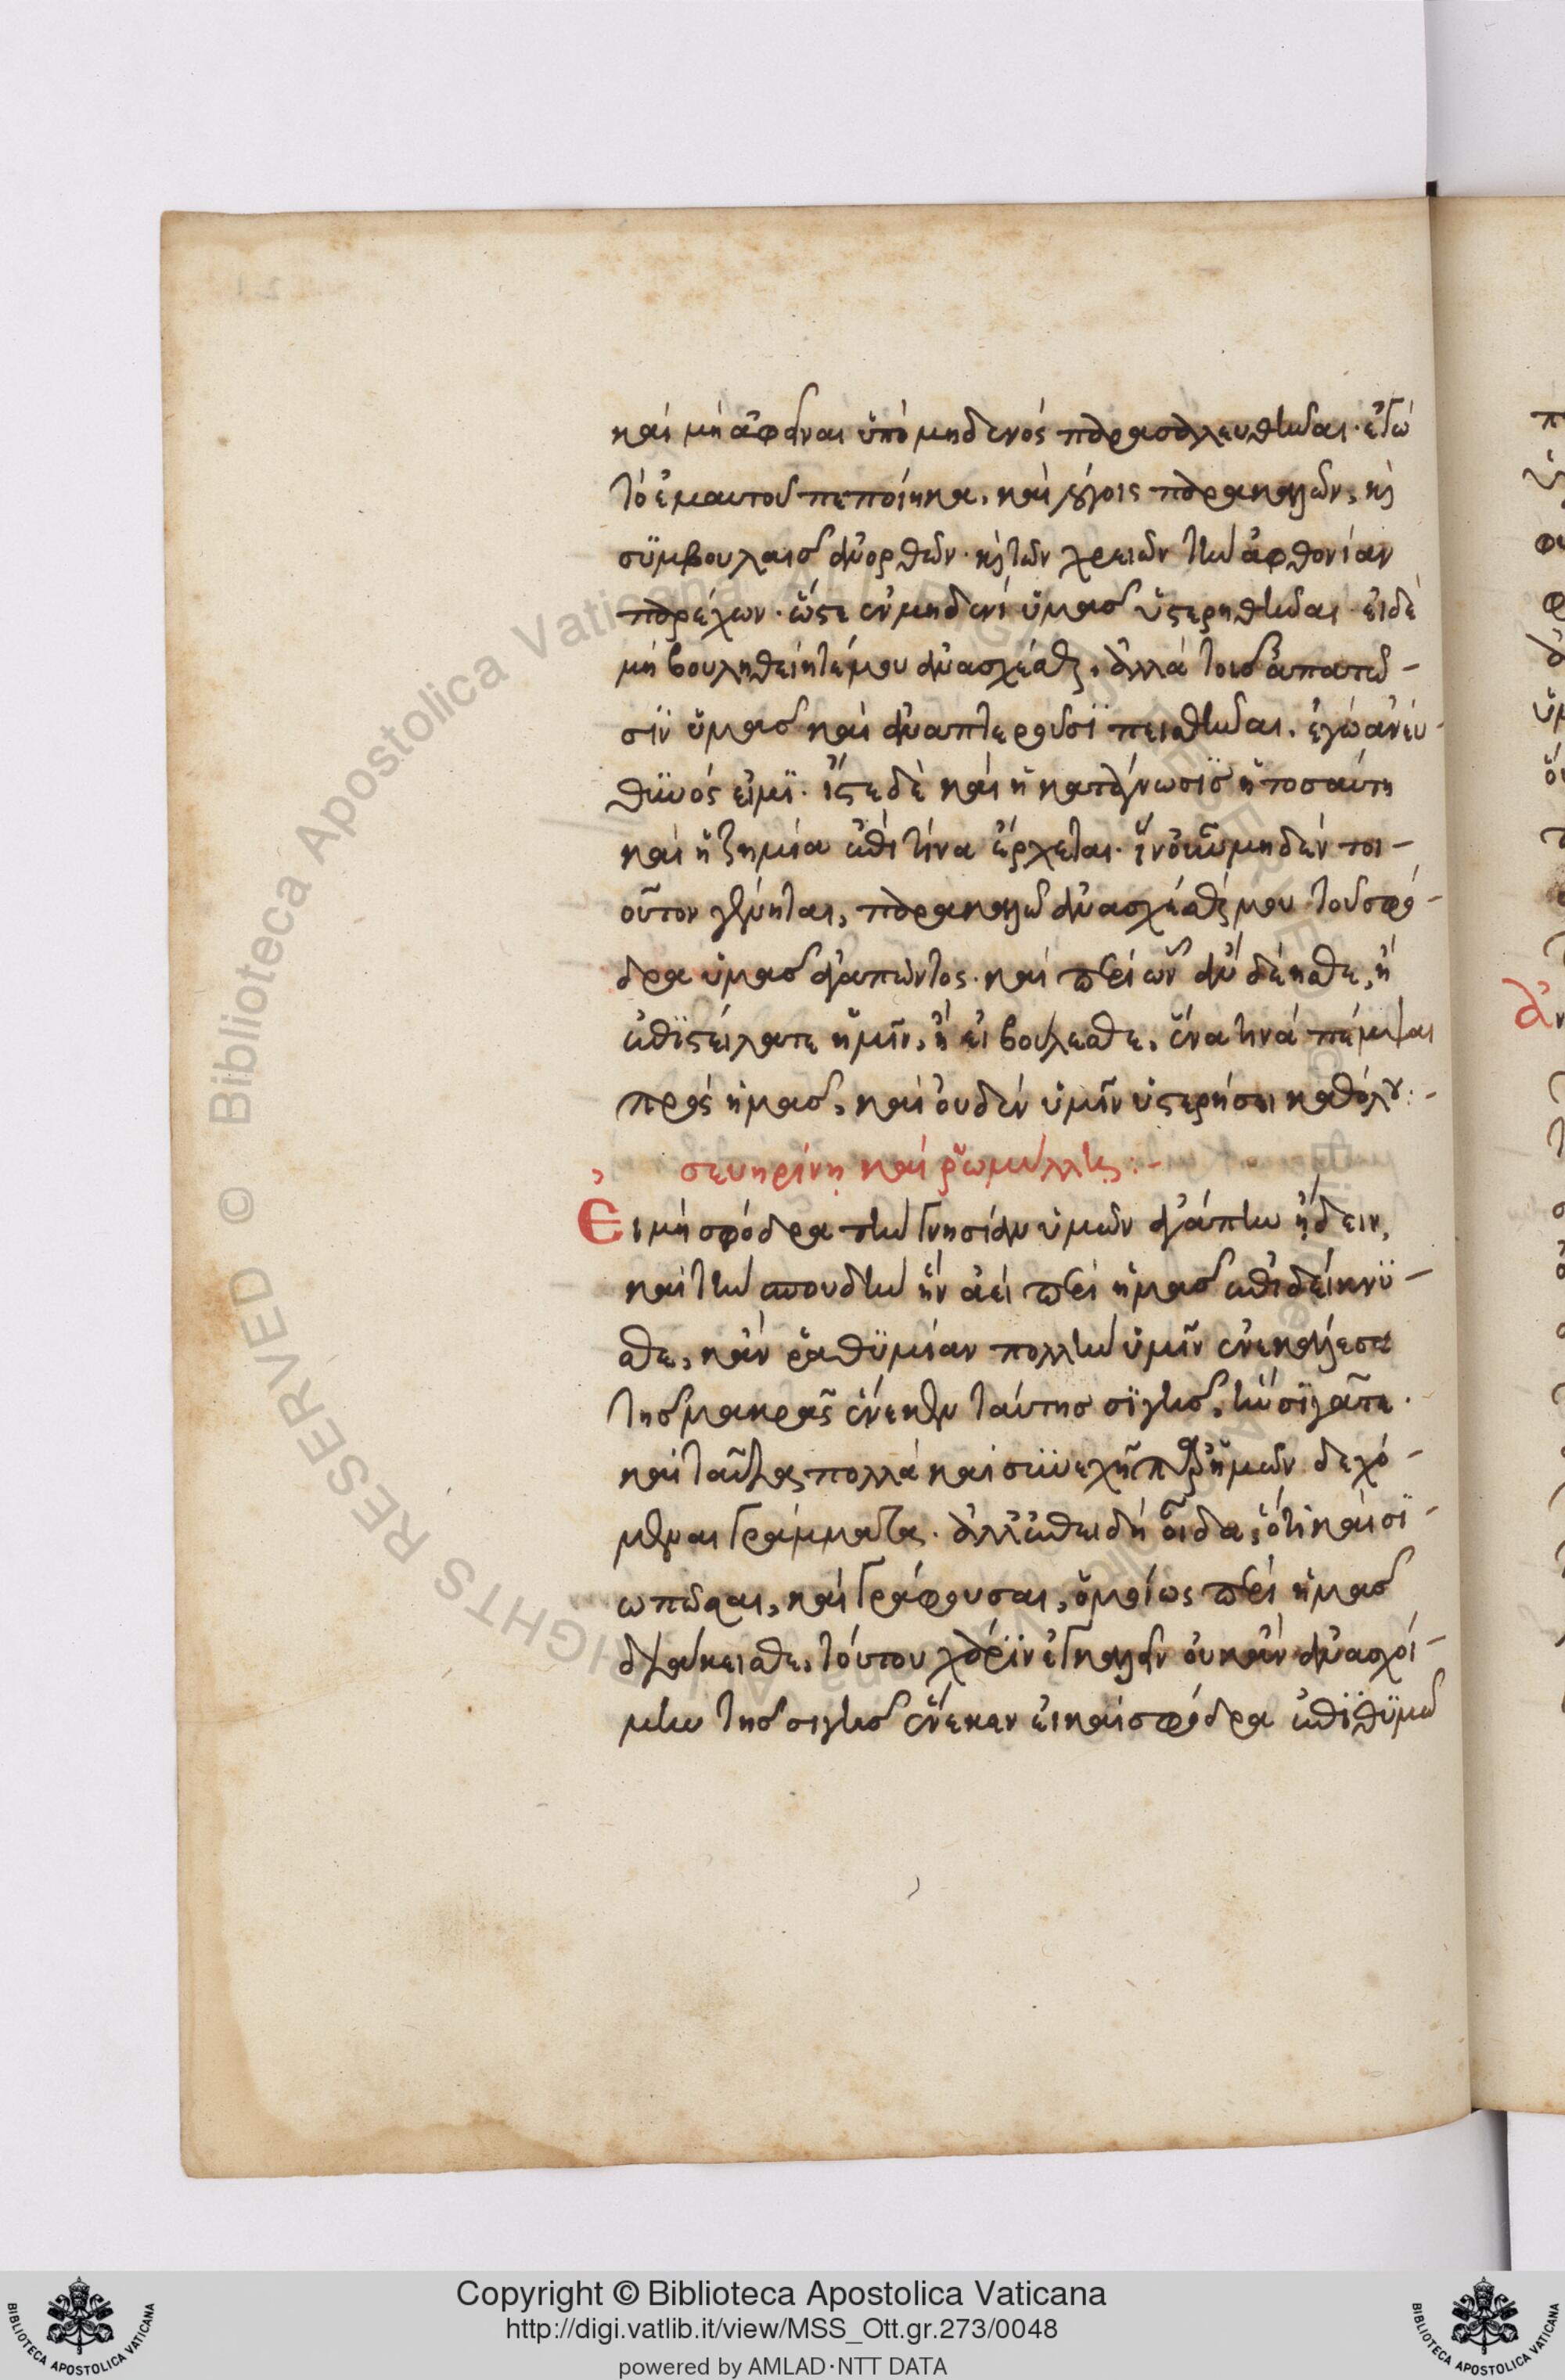 καὶ μὴ ἀφεῖναι ὑπὸ μηδενὸς παρασαλευθῆναι· ἐγὼ
τὸ ἐμαυτοῦ πεποίηκα, καὶ λόγοις παρακαλῶν, κỳ
συμβουλαῖς ἀνορθῶν· κỳ τῶν χρειῶν τὴν ἀφθονίαν
παρέχων· ὥστε ἐν μηδενὶ ὑμᾶς ὑστερηθῆναι· εἰ δὲ
μὴ βουληθείητέ μου ἀνασχέσθαι, ἀλλὰ τοῖς ἀπατῶ-
σιν ὑμᾶς καὶ ἀναπτεροῦσι πεισθῆναι, ἐγὼ ἀνεύ-
θυνός εἰμι· ἴστε δὲ καὶ ἡ κατάγνωσις ἡ τοσαύτη
καὶ ἡ ζημία ἐπὶ τίνα ἔρχεται· ἵν' οὖν μηδὲν τοι-
οῦτον γένηται, παρακαλῶ ἀνασχέσθαι μου τοῦ σφό-
δρα ὑμᾶς ἀγαπῶντος· καὶ περὶ ὧν ἂν δέησθε, ἢ
ἐπιστείλατε ἡμῖν, ἢ εἰ βούλεσθε, ἕνα τινὰ πέμψαι
πρὸς ἡμᾶς, καὶ οὐδὲν ὑμῖν ὑστερήσει καθόλου:-
σευηρίνῃ καὶ ῥωμύλλῃ:-
Εἰ μὴ σφόδρα τὴν γνησίαν ὑμῶν ἀγάπην ᾔδειν,
καὶ τὴν σπουδὴν ἣν ἀεὶ περὶ ἡμᾶς ἐπιδείκνυ-
σθε, κἂν ῥαθυμίαν πολλὴν ὑμῖν ἐνεκάλεσα
τῆς μακρᾶς ἕνεκεν ταύτης σιγῆς, ἣν σιγᾶτε·
καὶ ταῦτα πολλὰ καὶ συνεχῆ παρ' ἡμῶν δεχό-
μεναι γράμματα· ἀλλ' ἐπειδὴ οἶδα, ὅτι καὶ σι-
ωπῶσαι, καὶ γράφουσαι, ὁμοίως περὶ ἡμᾶς
διάκεισθε, τούτου χάριν ἐγκαλεῖν οὐκ ἂν ἀνασχοί-
μην τῆς σιγῆς ἕνεκεν εἰ καὶ σφόδρα ἐπιθυμῶ
Copyright © Biblioteca Apostolica Vaticana
http://digi.vatlib.it/view/MSS_Ott.gr.273/0048
powered by AMLAD·NTT DATA